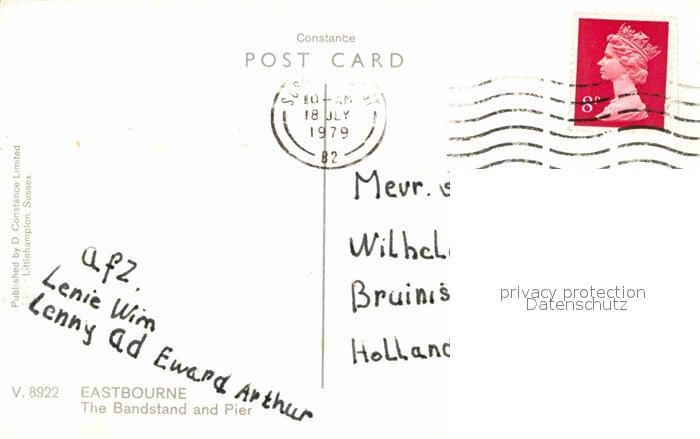 Constance
POST CARD
10-AM
18 JLY
1979
82
8P
Published by D. Constance Limited
Littlehampton, Sussex.
afz.
Lenie Wim
Lenny ad Eward Arthur
Mevr.
Wilhel
Bruinis
Holland
privacy protection
Datenschutz
V. 8922 EASTBOURNE
The Bandstand and Pier